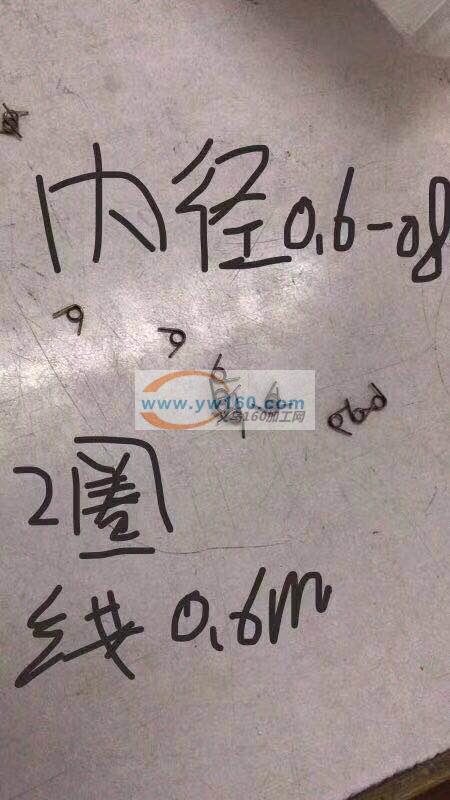 内径0.6-08
www.yw160.com
义乌160加工网
2圈
线 0.6m